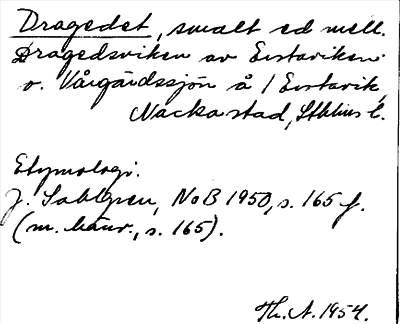 Dragedet, smalt ed mell.
Dragedsviken av Erstaviken
o. Vårgårdssjön å / Erstavik,
Nacka stad, Sthlms l.
Etymologi:
J. Sahlgren, NoB 1950, s. 165 f.
(m. hänv., s. 165).
Th. A. 1954.